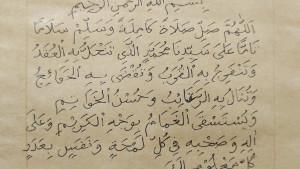 بسم الله الرحمن الرحيم
اللهم صل صلاة كاملة وسلم سلاما
تاما على سيدنا محمد الذي تنحل به العقد
وتنفرج به الكرب وتقضى به الحوائج
وتنال به الرغائب وحسن الخواتم
ويستسقى الغمام بوجهه الكريم وعلى
اله وصحبه في كل لمحة ونفس بعدد
كل معلوم لك